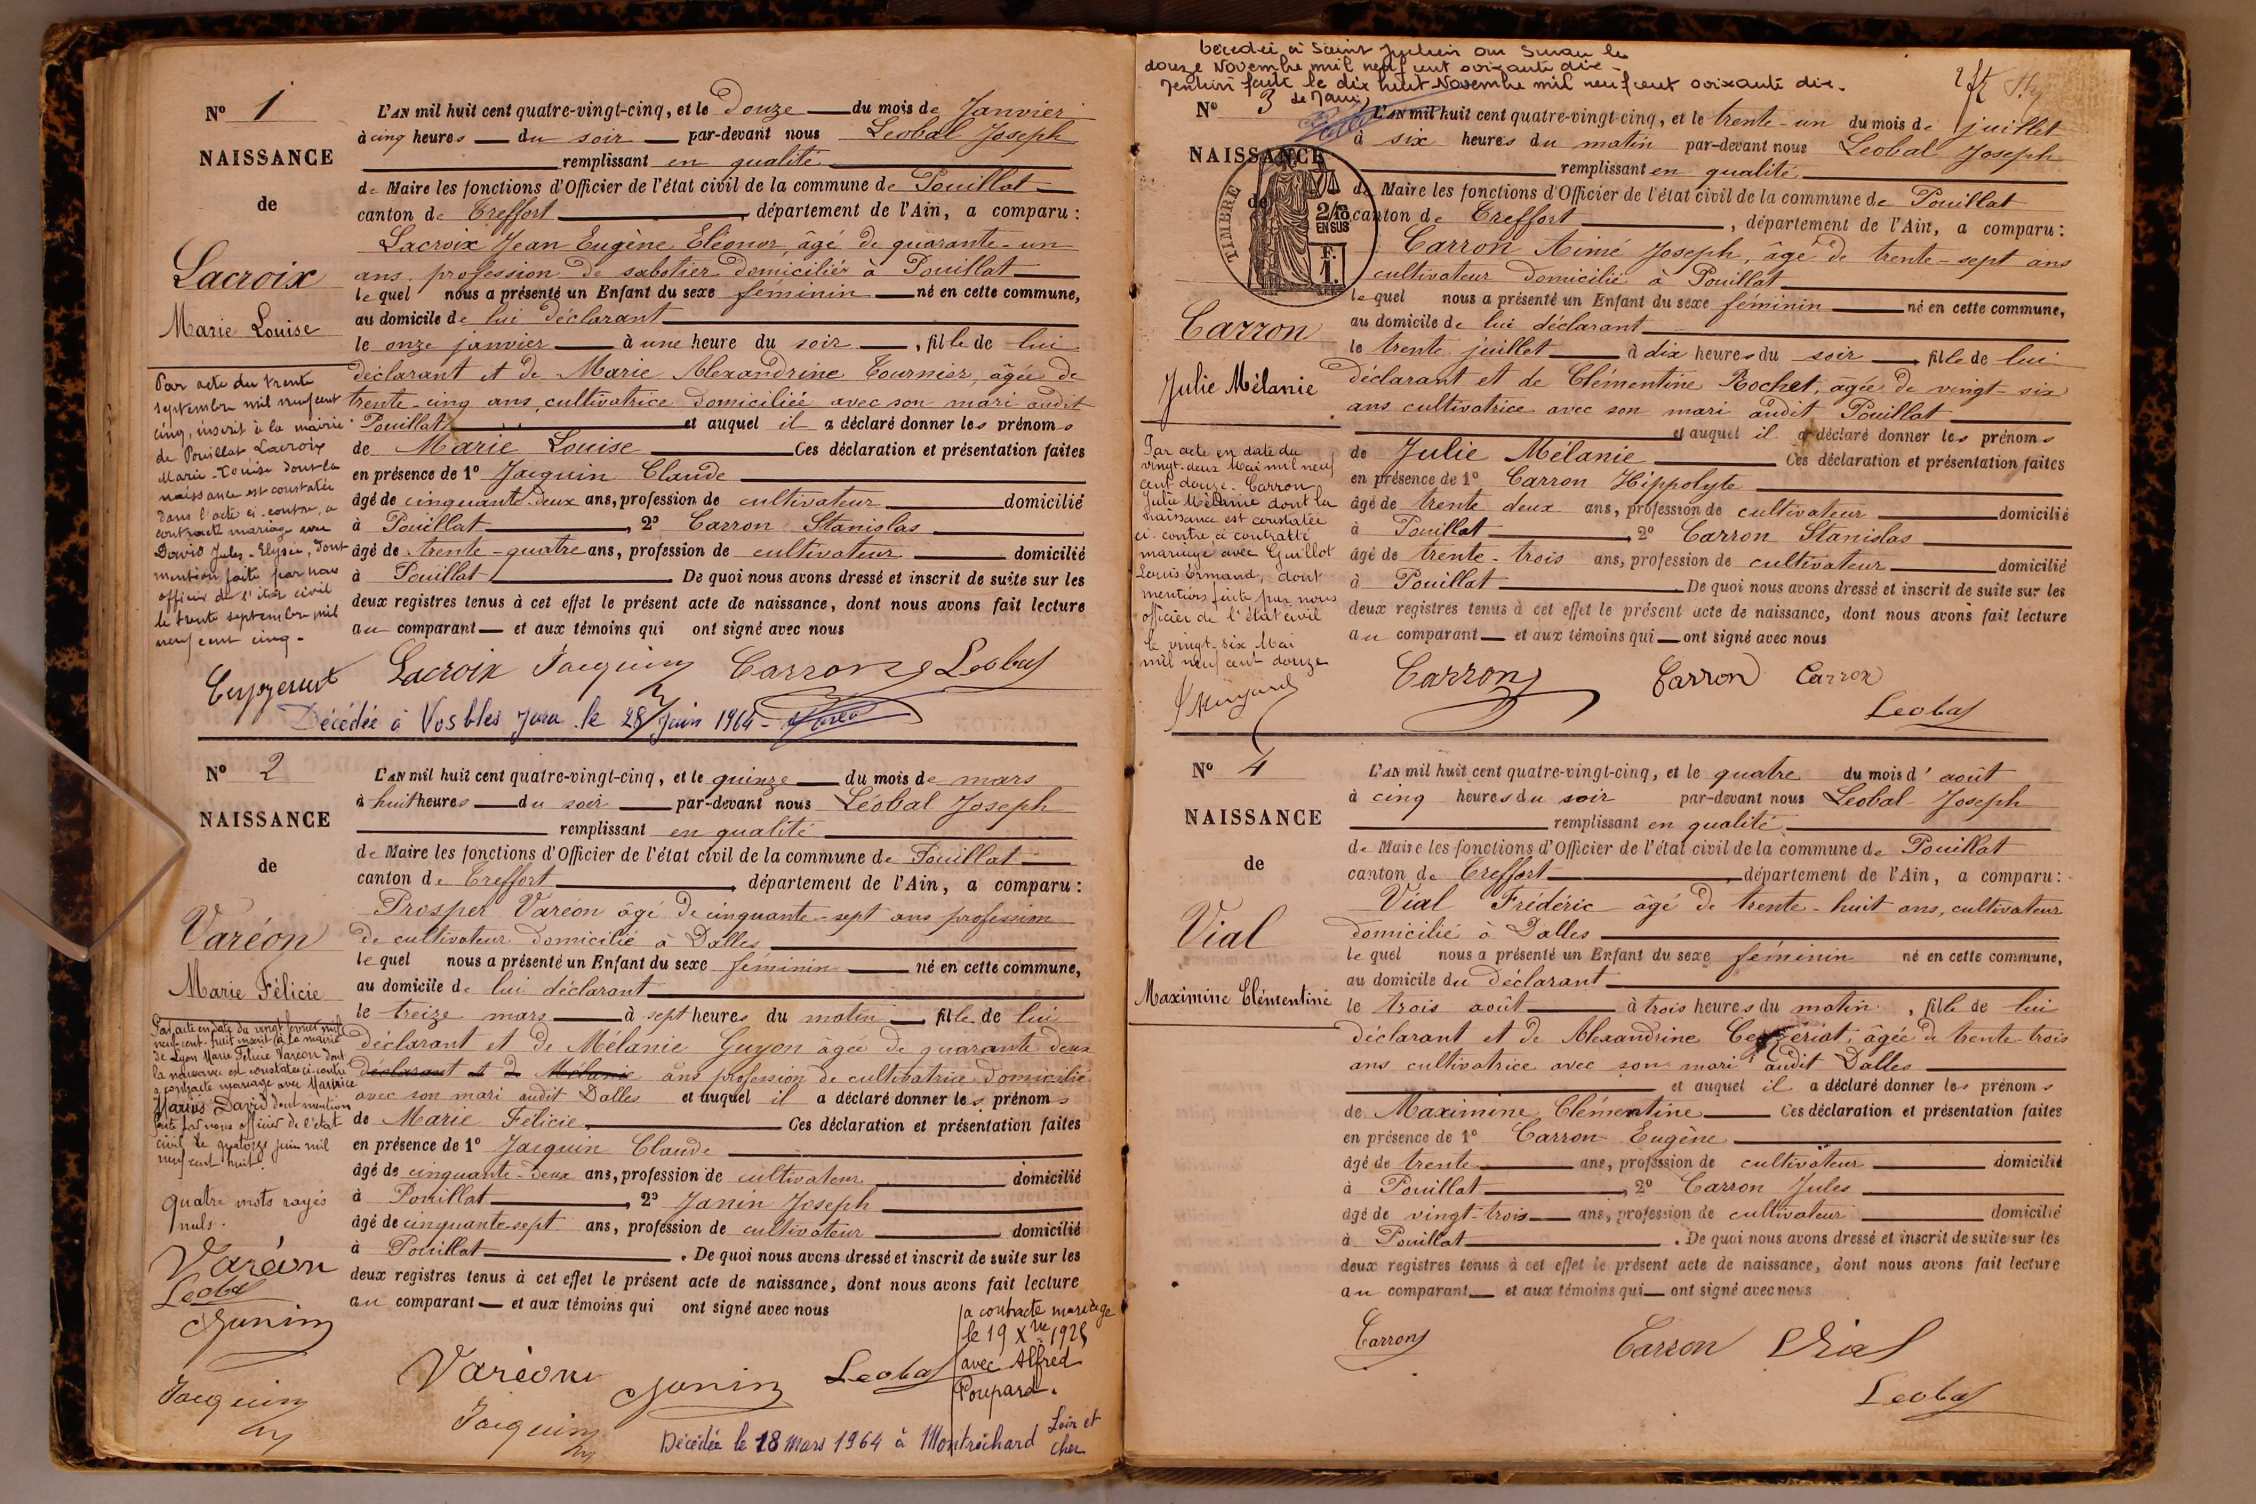 N° 1
NAISSANCE
de
Lacroix
Marie Louise
Par acte du trente
septembre mil neuf cent
cinq, inscrit à la mairie
de Pouillat Lacroix
Marie-Louise dont la
naissance est constatée
dans l'acte ci-contre, a
contracté mariage avec
David Jules-Elysée, dont
mention faite par nous
officier de l'état civil
le trente septembre mil
neuf cent cinq.
L'AN mil huit cent quatre-vingt-cinq, et le Douze du mois de Janvier
à cinq heures du soir par-devant nous Léobal Joseph
remplissant en qualité
de Maire les fonctions d'Officier de l'état civil de la commune de Pouillat
canton de Treffort, département de l'Ain, a comparu :
Lacroix Jean Eugène Eléonor, âgé de quarante-un
ans, profession de sabotier domicilié à Pouillat
lequel nous a présenté un Enfant du sexe féminin né en cette commune,
au domicile de lui déclarant
le onze janvier à une heure du soir, fille de lui
déclarant et de Marie Alexandrine Tournier, âgée de
trente-cinq ans, cultivatrice domiciliée avec son mari audit
Pouillat et auquel il a déclaré donner les prénoms
de Marie Louise Ces déclaration et présentation faites
en présence de 1° Jacquin Claude
âgé de cinquante deux ans, profession de cultivateur domicilié
à Pouillat, 2° Carron Stanislas
âgé de trente-quatre ans, profession de cultivateur domicilié
à Pouillat De quoi nous avons dressé et inscrit de suite sur les
deux registres tenus à cet effet le présent acte de naissance, dont nous avons fait lecture
au comparant et aux témoins qui ont signé avec nous
Lacroix Jacquin Carron Leobal
Décédée à Vosbles Jura le 28 Juin 1964 -
N° 2
NAISSANCE
de
Varéon
Marie Félicie
Par acte en date du vingt février mil
neuf cent huit inscrit à la mairie
de Lyon Marie Félicie Varéon dont
la naissance est constatée ci-contre
a contracté mariage avec Maurice
Marius David dont mention
faite par nous officier de l'état
civil le quatorze juin mil
neuf cent huit.
quatre mots rayés
nuls.
Varéon
Leobal
Janin
Jacquin
L'AN mil huit cent quatre-vingt-cinq, et le quinze du mois de mars
à huit heures du soir par-devant nous Léobal Joseph
remplissant en qualité
de Maire les fonctions d'Officier de l'état civil de la commune de Pouillat
canton de Treffort, département de l'Ain, a comparu :
Prosper Varéon âgé de cinquante-sept ans profession
de cultivateur domicilié à Dalles
lequel nous a présenté un Enfant du sexe féminin né en cette commune,
au domicile de lui déclarant
le treize mars à sept heures du matin, fille de lui
déclarant et de Mélanie Guyon âgée de quarante deux
déclarant et de Mélanie ans profession de cultivatrice domiciliée
avec son mari audit Dalles et auquel il a déclaré donner les prénoms
de Marie Félicie Ces déclaration et présentation faites
en présence de 1° Jacquin Claude
âgé de cinquante-deux ans, profession de cultivateur domicilié
à Pouillat, 2° Janin Joseph
âgé de cinquante-sept ans, profession de cultivateur domicilié
à Pouillat. De quoi nous avons dressé et inscrit de suite sur les
deux registres tenus à cet effet le présent acte de naissance, dont nous avons fait lecture
au comparant et aux témoins qui ont signé avec nous
a contracté mariage
le 19 Xbre 1925
avec Alfred
Poupard.
Varéon Janin Leobal
Jacquin
Décédée le 18 mars 1964 à Montrichard Loir et
Cher
Décédée à Saint Julien sur Suran le
douze Novembre mil neuf cent soixante dix -
Mention faite le dix huit Novembre mil neuf cent soixante dix.
N° 3
NAISSANCE
de
TIMBRE
2/10
EN SUS
F.
1.
Carron
Julie Mélanie
Par acte en date du
vingt-deux Mai mil neuf
cent douze. Carron
Julie Mélanie dont la
naissance est constatée
ci-contre, a contracté
mariage avec Guillot
Louis Armand, dont
mention faite par nous
officier de l'état civil
le vingt-six Mai
mil neuf cent douze
L'AN mil huit cent quatre-vingt-cinq, et le trente-un du mois de juillet
à six heures du matin par-devant nous Léobal Joseph
remplissant en qualité
de Maire les fonctions d'Officier de l'état civil de la commune de Pouillat
canton de Treffort, département de l'Ain, a comparu :
Carron Aimé Joseph, âgé de trente-sept ans
cultivateur domicilié à Pouillat
lequel nous a présenté un Enfant du sexe féminin né en cette commune,
au domicile de lui déclarant
le trente juillet à dix heures du soir, fille de lui
déclarant et de Clémentine Rochet, âgée de vingt-six
ans cultivatrice avec son mari audit Pouillat
et auquel il a déclaré donner les prénoms
de Julie Mélanie Ces déclaration et présentation faites
en présence de 1° Carron Hippolyte
âgé de trente deux ans, profession de cultivateur domicilié
à Pouillat, 2° Carron Stanislas
âgé de trente-trois ans, profession de cultivateur domicilié
à Pouillat. De quoi nous avons dressé et inscrit de suite sur les
deux registres tenus à cet effet le présent acte de naissance, dont nous avons fait lecture
au comparant et aux témoins qui ont signé avec nous
Carron Carron Carron
Leobal
N° 4
NAISSANCE
de
Vial
Maximine Clémentine
L'AN mil huit cent quatre-vingt-cinq, et le quatre du mois d'août
à cinq heures du soir par-devant nous Léobal Joseph
remplissant en qualité
de Maire les fonctions d'Officier de l'état civil de la commune de Pouillat
canton de Treffort, département de l'Ain, a comparu :
Vial Frédéric âgé de trente-huit ans, cultivateur
domicilié à Dalles
lequel nous a présenté un Enfant du sexe féminin né en cette commune,
au domicile du déclarant
le trois août à trois heures du matin, fille de lui
déclarant et de Alexandrine âgée de trente-trois
ans cultivatrice avec son mari audit Dalles
et auquel il a déclaré donner les prénoms
de Maximine Clémentine Ces déclaration et présentation faites
en présence de 1° Carron Eugène
âgé de trente ans, profession de cultivateur domicilié
à Pouillat, 2° Carron Jules
âgé de vingt-trois ans, profession de cultivateur domicilié
à Pouillat. De quoi nous avons dressé et inscrit de suite sur les
deux registres tenus à cet effet le présent acte de naissance, dont nous avons fait lecture
au comparant et aux témoins qui ont signé avec nous
Carron Carron Vial
Leobal